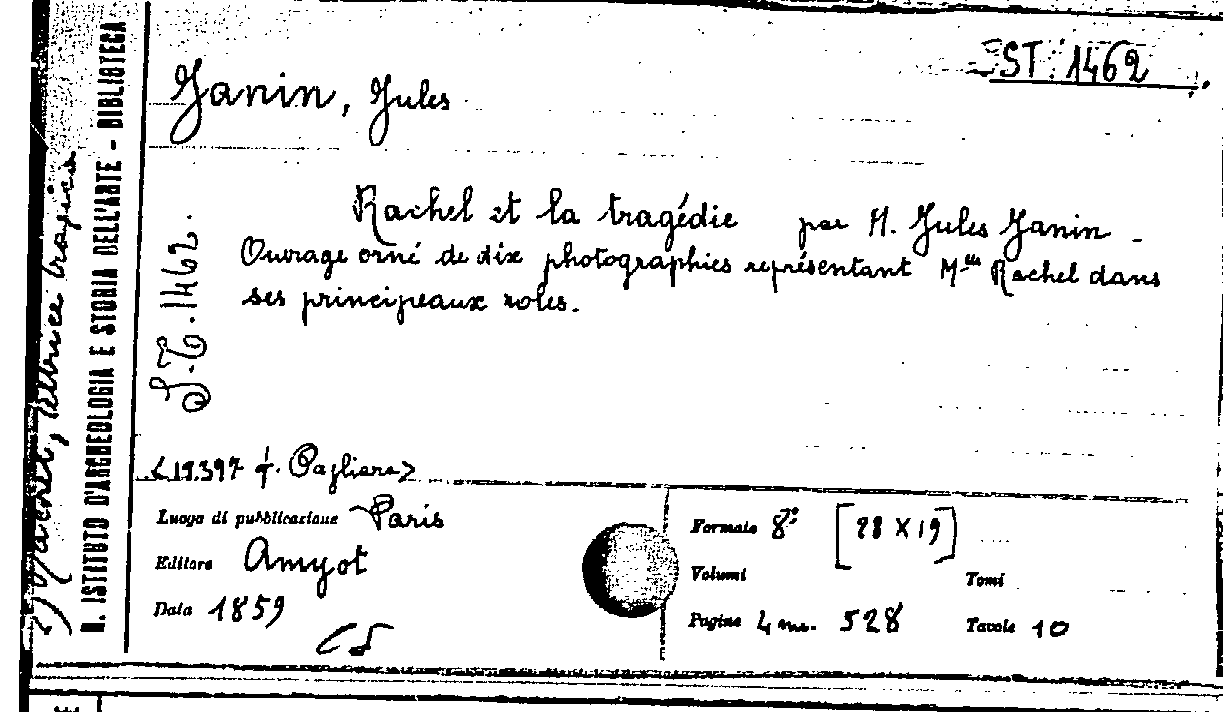 ST. 1462
Janin, Jules
Rachel et la tragédie par M. Jules Janin -
Ouvrage orné de dix photographies représentant Mlle Rachel dans
ses principeaux roles.
S.T. 1462.
<19.397 f. Pagliara>
Luogo di pubblicazione Paris
Editore Amyot
Data 1859
Formato 8º [28 X 19]
Volumi
Tomi
Pagine 4 nn. 528
Tavole 10
R. ISTITUTO D'ARCHEOLOGIA E STORIA DELL'ARTE - BIBLIOTECA
tragica